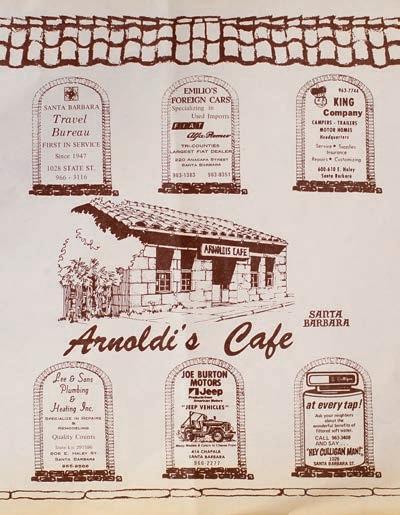 SANTA BARBARA
Travel
Bureau
FIRST IN SERVICE
Since 1947
1028 STATE ST.
966 - 3116
EMILIO'S
FOREIGN CARS
Specializing in
Used Imports
FIAT
Alfa-Romeo
TRI-COUNTIES
LARGEST FIAT DEALER
220 ANACAPA STREET
SANTA BARBARA
963-1383 963-8351
963-7744
KING
Company
CAMPERS - TRAILERS
MOTOR HOMES
Headquarters
Service • Supplies
Insurance
Repairs • Customizing
600-610 E. Haley
Santa Barbara
ARNOLDI'S CAFE
SANTA
BARBARA
Arnoldi's Cafe
Lee & Sons
Plumbing
&
Heating Inc.
SPECIALIZE IN REPAIRS
&
REMODELING
Quality Counts
State Lic
608 E. HALEY ST
SANTA BARBARA
JOE BURTON
MOTORS
Jeep
American Motors
"JEEP VEHICLES"
Many Models & Colors to Choose From
414 CHAPALA
SANTA BARBARA
966-2277
Culligan
at every tap!
Ask your neighbors
about the
wonderful benefits of
filtered soft water.
CALL 963-3408
AND SAY....
"HEY CULLIGAN MAN!"
1025
SANTA BARBARA ST.